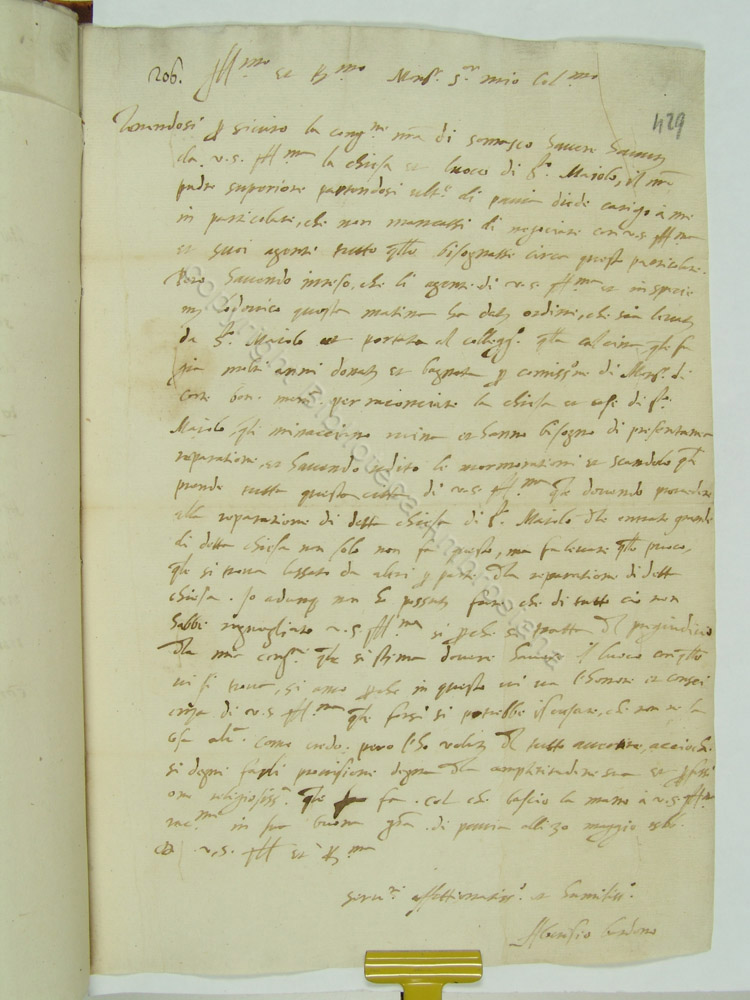 206. Ill.mo et R.mo Mons.r S.or mio Col.mo
429
Tenendosi p sicuro la cong.ne nra di somasco havere havuta
da v.s. Ill.ma la chiesa et luoco di S.to Maiolo, il nro
padre superiore partendosi ult.e di pavia diede carigo à me
in particolare, che non mancassi di negociare con v.s. Ill.ma
et suoi agenti tutto qllo bisognasse circa questo particolare.
Pero havendo inteso, che li agenti di v.s. Ill.ma et in specie
m Lodovico questa matina ha dato ordine, che sia levata
da S.to Maiolo et portata al collegg.o qlla calcina, qle fu
gia molti anni donata et bagnata p comiss.ne di Mons.r di
corte bon. mem. per racconciare la chiesa et case di S.to
Maiolo, qli minacciano ruina et hanno bisogno di presentanea
reparatione, et havendo udito le mormorationi et scandolo
prende tutta questa citta di v.s. Ill.ma qle dovendo provedere
alla reparatione di detta chiesa di S.to Maiolo dle entrate
di detta chiesa non solo non fa questo, ma fa levare qllo puoco,
che si trova lassato da altri p parte dla reparatione di detta
chiesa. Io adunq non ho possuto fare che di tutto cio non
habbi raguagliato v.s. Ill.ma si pche si tratta dl pregiudicio
dla nra cong.ne qle si stima dovere havere il luoco con qllo
vi si trova, si anco pche in questo vi va l'honore et consci
enza di v.s. Ill.ma qle forsi si potrebbe iscusare, che non ne sa
cosa alc.a come credo. pero l'ho voluta dl tutto avertire, accioche
si degni farli provisione degna dla amplitudine sua et pfessi
one religiosiss.a qle fa. col che bascio la mano à v.s. Ill.ma
rac.mi in sua buona gra. di pavia alli 30 maggio
D v.s. Ill et R.ma
serv.re affettionatiss.o et humiliss.o